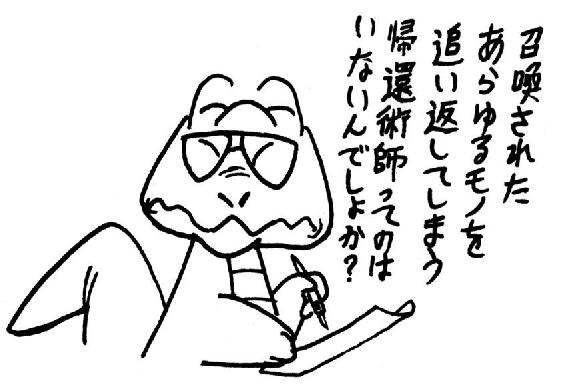 召喚された
あらゆるモノを
追い返してしまう
帰還術師ってのは
いないんでしょか?